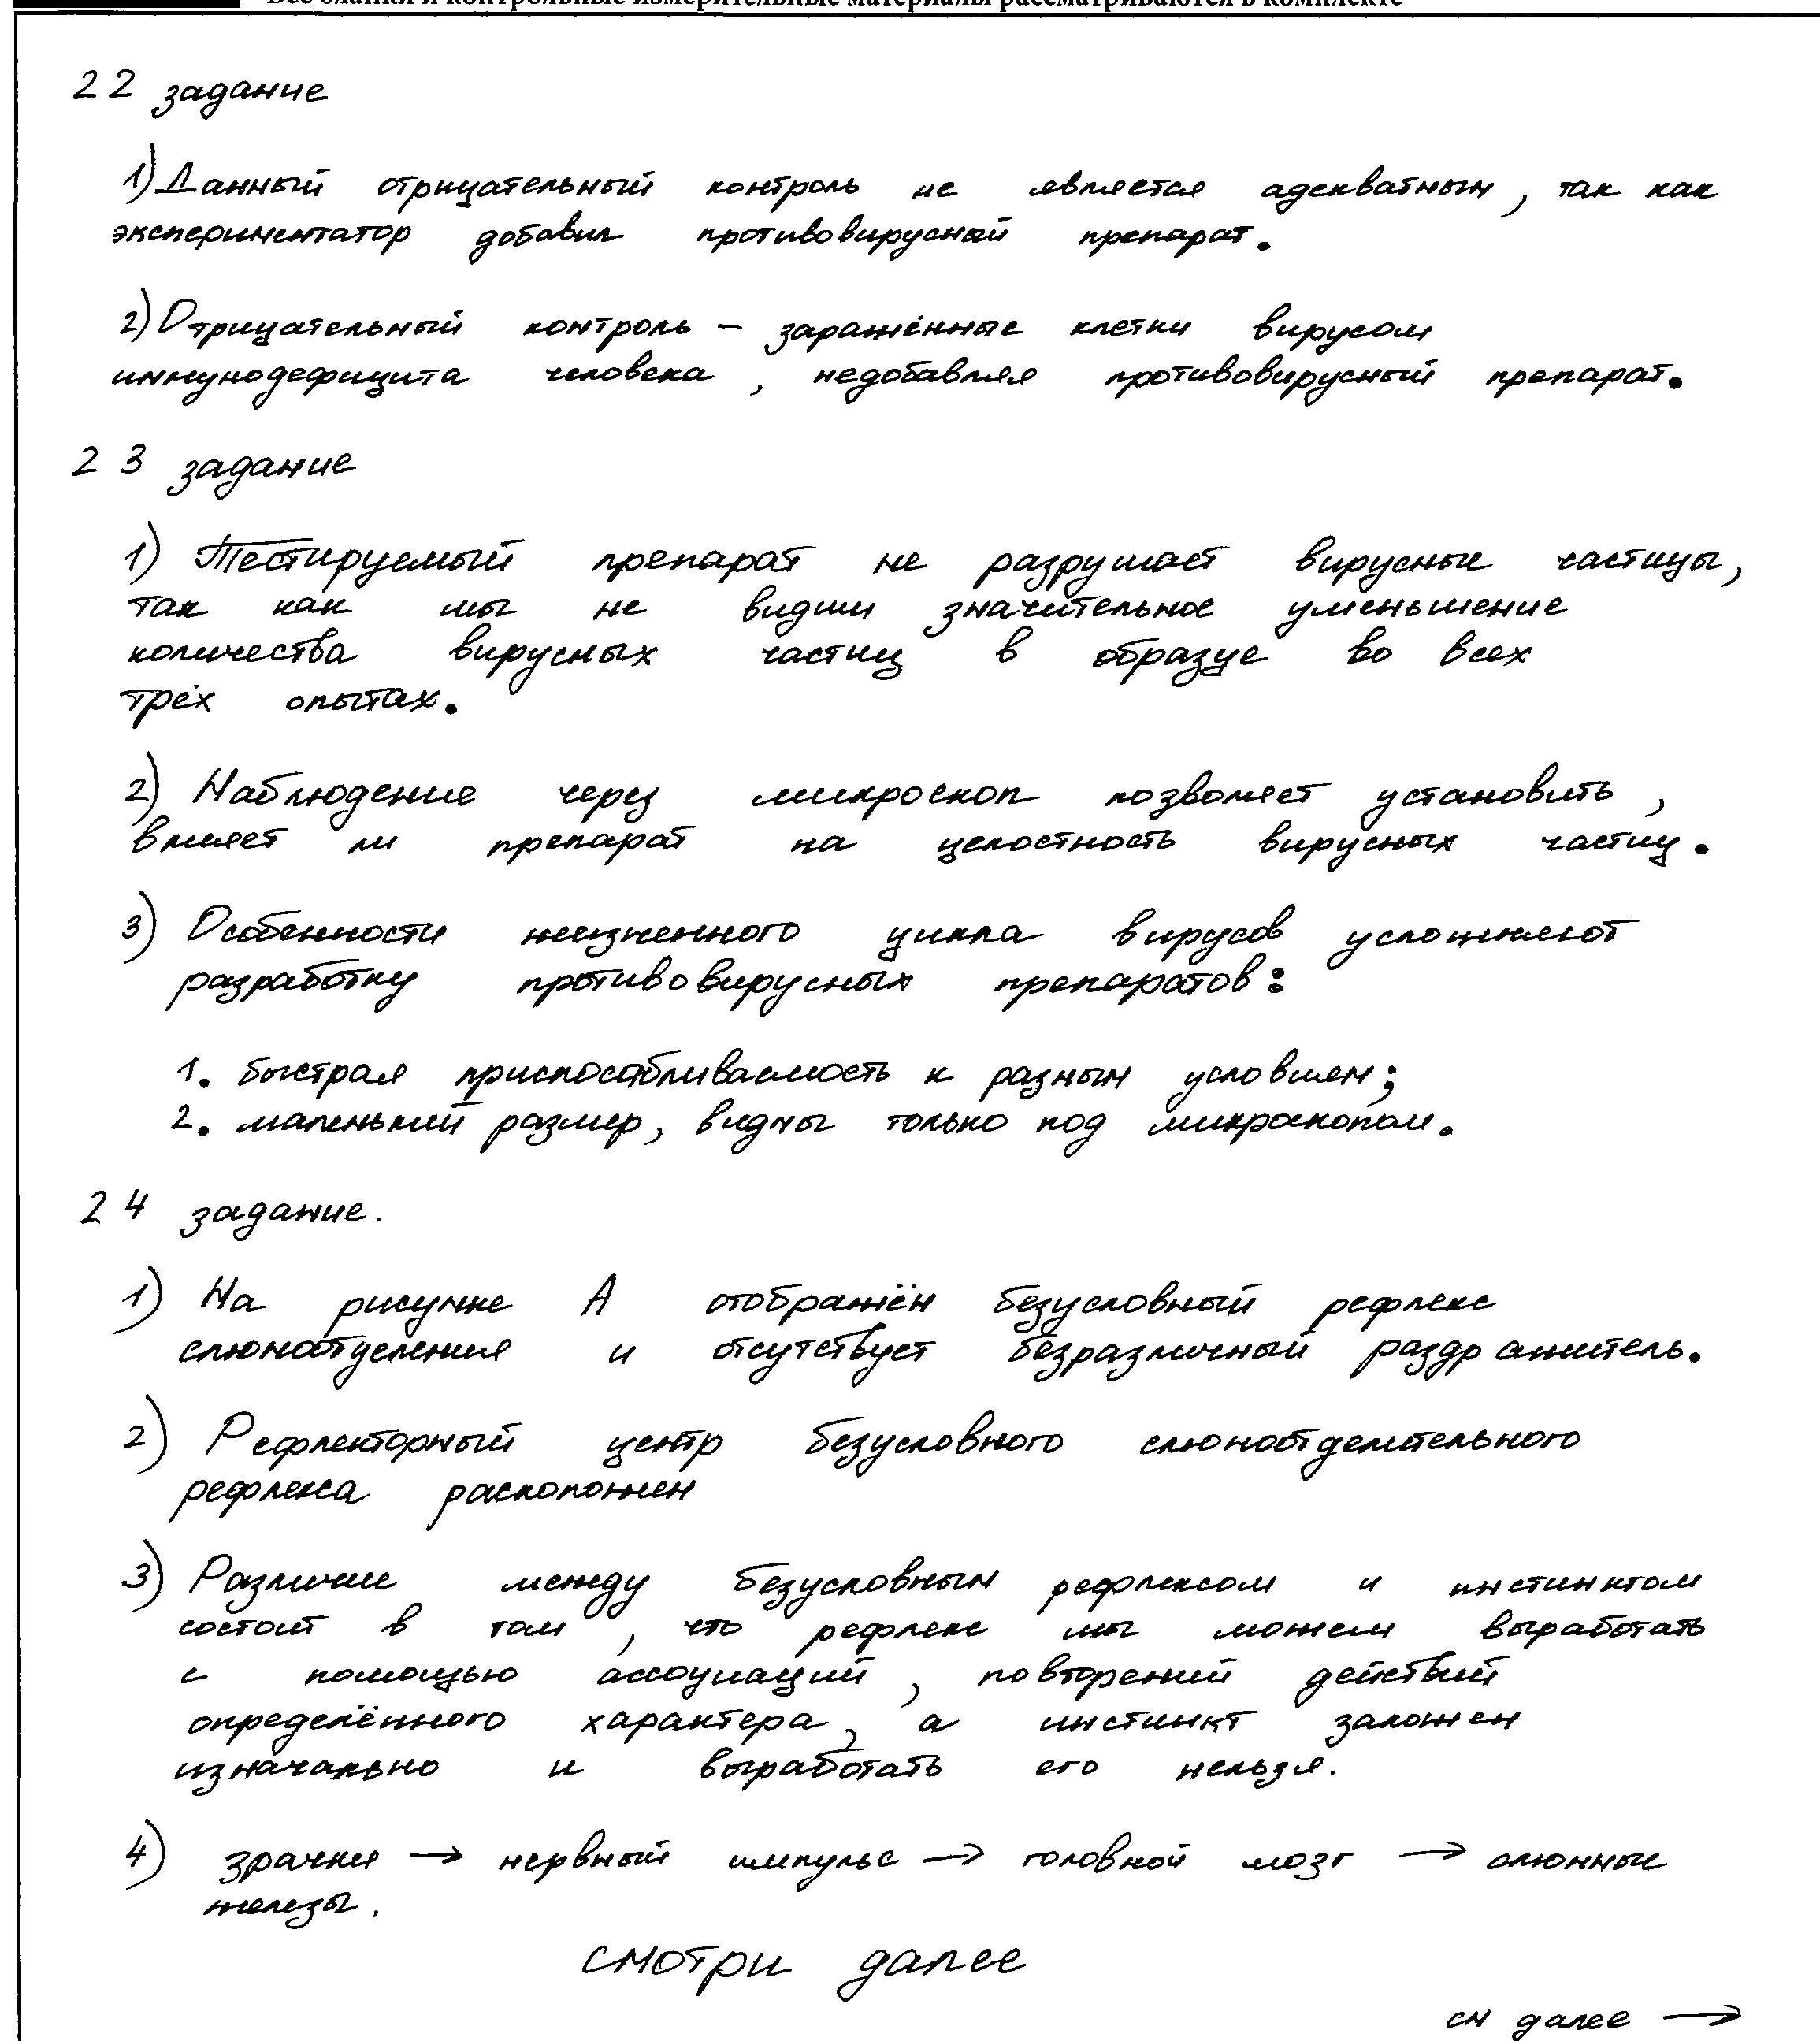 Все бланки и контрольные измерительные материалы рассматриваются в комплекте
22 задание
1) Данный отрицательный контроль не является адекватным, так как
экспериментатор добавил противовирусный препарат.
2) Отрицательный контроль – заражённые клетки вирусом
иммунодефицита человека, недобавляя противовирусный препарат.
23 задание
1) Тестируемый препарат не разрушает вирусные частицы,
так как мы не видим значительное уменьшение
количества вирусных частиц в образце во всех
трёх опытах.
2) Наблюдение через микроскоп позволяет установить,
влияет ли препарат на целостность вирусных частиц.
3) Особенности жизненного цикла вирусов усложняют
разработку противовирусных препаратов:
1. быстрая приспосабливаемость к разным условиям;
2. маленький размер, видны только под микроскопом.
24 задание.
1) На рисунке А отображён безусловный рефлекс
слюноотделения и отсутствует безразличный раздражитель.
2) Рефлекторный центр безусловного слюноотделительного
рефлекса расположен
3) Различие между безусловным рефлексом и инстинктом
состоит в том, что рефлекс мы можем выработать
с помощью ассоциаций, повторений действий
определённого характера, а инстинкт заложен
изначально и выработать его нельзя.
4) зрачки → нервный импульс → головной мозг → слюнные
железы.
смотри далее
см далее →